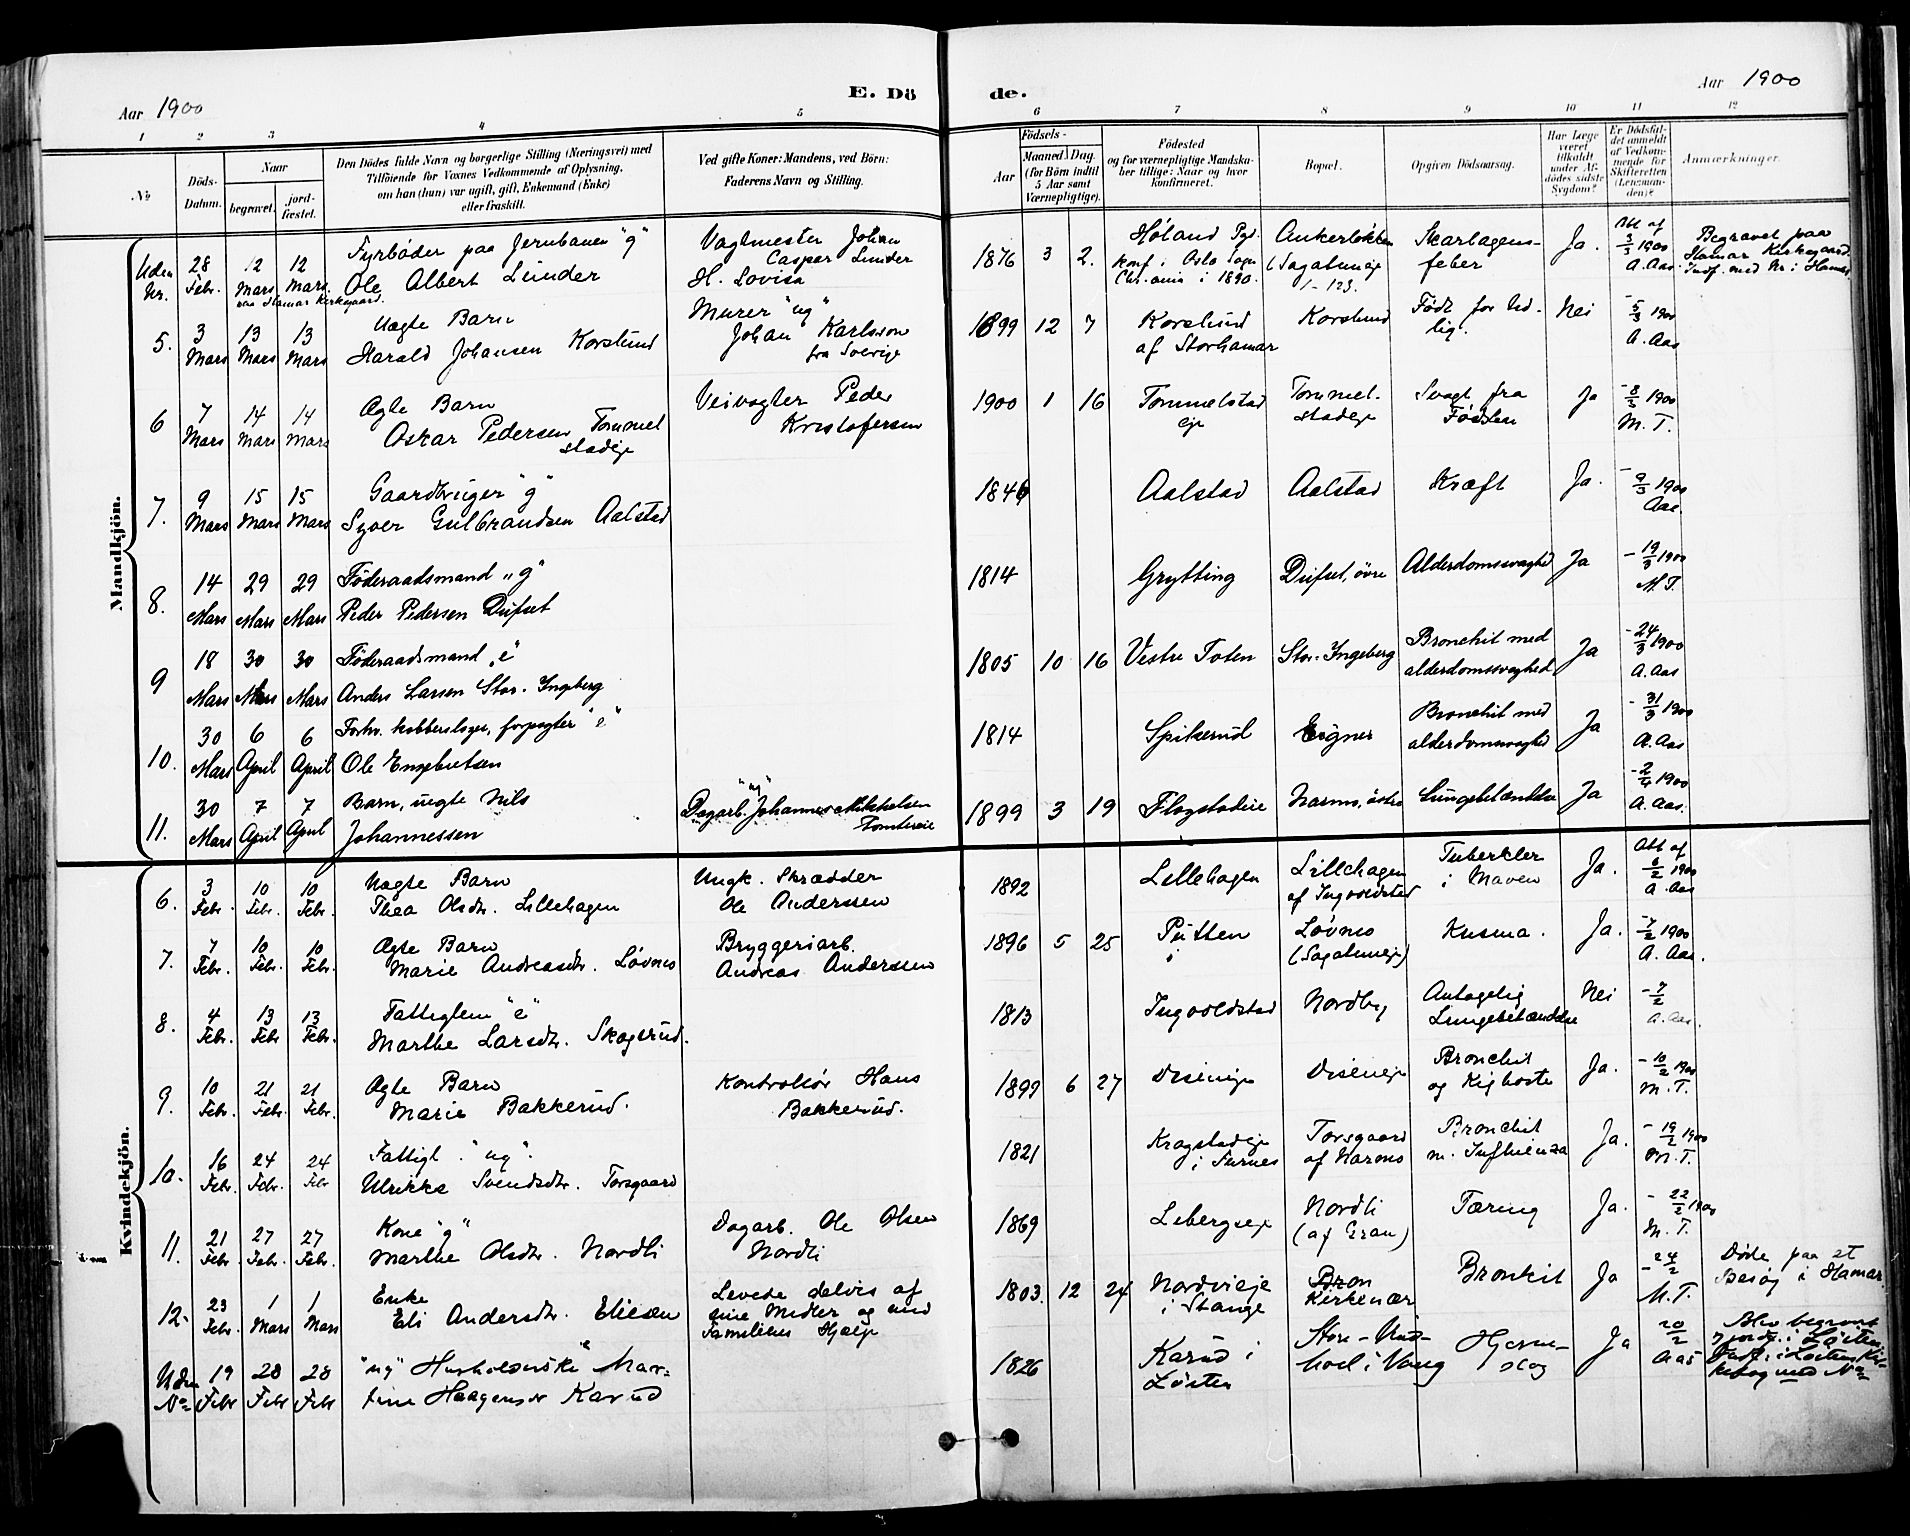 Aar 1900
E. Dö
de.
Aar 1900
1 2 3 4 5 6 7 8 9 10 11 12
No
Döds-Datum.
Naar
begravet.
jord-fæstet.
Den Dödes fulde Navn og borgerlige Stilling (Næringsvei) med
Tilföiende for Voxnes Vedkommende af Oplysning,
om han (hun) var ugift, gift, Enkemand (Enke)
eller fraskilt.
Ved gifte Koner: Mandens, ved Börn:
Faderens Navn og Stilling.
Födsels-
Aar
Maaned Dag.
(for Börn indtil
5 Aar samt
Værnepligtige).
Födested
og for værnepligtige Mandska-
ber tillige: Naar og hvor
konfirmeret.
Bopæl.
Opgiven Dödsaarsag.
Har Læge
været
tilkaldt
under Af-
dödes sidste
Sygdom?
Er Dödsfal-
det anmeldt
af Vedkom-
mende for
Skifteretten
(Lensman-
den)?
Anmærkninger.
Mandkjön.
Uden Nr. 28 Febr. 12 Mars 12 Mars. paa Hamar Kirkegaard. Fyrbøder paa Jernbanen "g" Ole Albert Lunder Vagtmester Johan Caspar Lunder H. Lovisa 1876 3 2. Høland Pgd. konf. i Oslo Sogn Chr.ania i 1890. Ankerløkken (Sagatuneje 1-123. Skarlagens-feber Ja. Att af 3/3 1900 A. Aas Begravet paa Hamar Kirkegaard. Indf. med Nr. i Hamar
5. 3 Mars 13 Mars 13 Mars Uægte Barn Harald Johansen Korslund Murer "ug" Johan Karlsson fra Sverige 1899 12 7 Korslund af Storhamar Korslund Født for tid-lig. Nei - 5/3 1900 A. Aas
6 7 Mars 14 Mars 14 Mars Ægte Barn Oskar Pedersen Tommelstadeje Veivogter Peder Kristofersen 1900 1 16 Tommelstad eje Tommel-stadeje Svagt fra Fødslen Ja - 8/3 1900 M. T.
7. 9 Mars 15 Mars 15 Mars Gaardbruger "g" Syver Gulbrandsen Aalstad 1846 Aalstad Aalstad Kræft Ja. - 9/3 1900 Aas.
8. 14 Mars 29 Mars 29 Mars Føderaadsmand "g" Peder Pedersen Dufset 1814 Grytting Dufset, øvre Alderdomssvaghed Ja - 19/3 1900 M. T.
9 18 Mars 30 Mars 30 Mars Føderaadsmand "e" Anders Larsen Stor-Ingeberg 1805 10 16 Vestre Toten Stor-Ingeberg Bronchit med alderdomssvaghed Ja - 24/3 1900 A. Aas
10. 30 Mars 6 April 6 April Forhv. kobberslager, forpagter "e" Ole Engebretsen 1814 Spikerud Eigner Bronchit med alderdomssvaghed Ja - 31/3 1900 A. Aas
11. 30 Mars 7 April 7 April Barn, uegte Nils Johannessen Dagarb. "ug" Johannes Mikkelsen Tomtereie 1899 3 19 Flagstadeie Narmo, østre Lungebetændelse Ja - 2/4 1900 A. Aas.
Kvindekjön.
6. 3 Febr. 10 Febr. 10 Febr. Uægte Barn Thea Olsdtr. Lillehagen Ungk. Skrædder Ole Anderssen 1892 Lillehagen Lillehagen af Ingvoldstad Tuberkler i Maven Ja. Att af 6/2 1900 A. Aas
7. 7 Febr. 10 Febr. 10 Febr. Ægte Barn Marie Andreasdtr. Løvnes Bryggeriarb. Andreas Anderssen 1896 5 25 Putten i Løvnes (Sagatuneje) Kusma. Ja. - 7/2 1900 A. Aas.
8. 4 Febr. 13 Febr. 13 Febr. Fattiglem "e" Marthe Larsdtr. Skagsrud. 1813 Ingvoldstad Nordby Antagelig Lungebetændelse Nei - 7/2 A. Aas.
9. 10 Febr. 21 Febr. 21 Febr. Ægte Barn Marie Bakkerud. Kontrollør Hans Bakkerud. 1899 6 27 Diseneje Diseneje Bronchit og Kighoste Ja. - 10/2 1900 M. T.
10. 16 Febr. 24 Febr. 24 Febr Fattigl. "ug". Ulrikke Svendsdtr. Torsgaard 1821 Kragstadeje i Furnes Torsgaard af Narmo Bronchit m. Influenza Ja. - 19/2 1900 M. T.
11. 21 Febr. 27 Febr. 27 Febr. Kone "g" Marthe Olsdtr. Nordli Dagarb. Ole Olsen Nordli 1869 Lebergseje Nordli (af Gran) Tæring Ja. - 22/2 1900 M. T.
12. 23 Febr. 1 Mars 1 Mars Enke Eli Andersdtr. Eliesen Levede delvis af sine Midler og med Familiens Hjælp 1803. 12 24 Nordvieje i Stange Kirkenær Bronkit Ja - 24/2 M. T Døde paa et Besøg i Hamar
Uden No 19 Febr 28 Febr 28 Febr "ug" Husholderske Martine Haagensdr Karud 1826 Karud i Løiten Store-Hvinhvel i Vang Hjerneslag Ja 20/2 Aas Blev begravet og jordf. i Løiten Indf. i Løitens Kirkebog med No